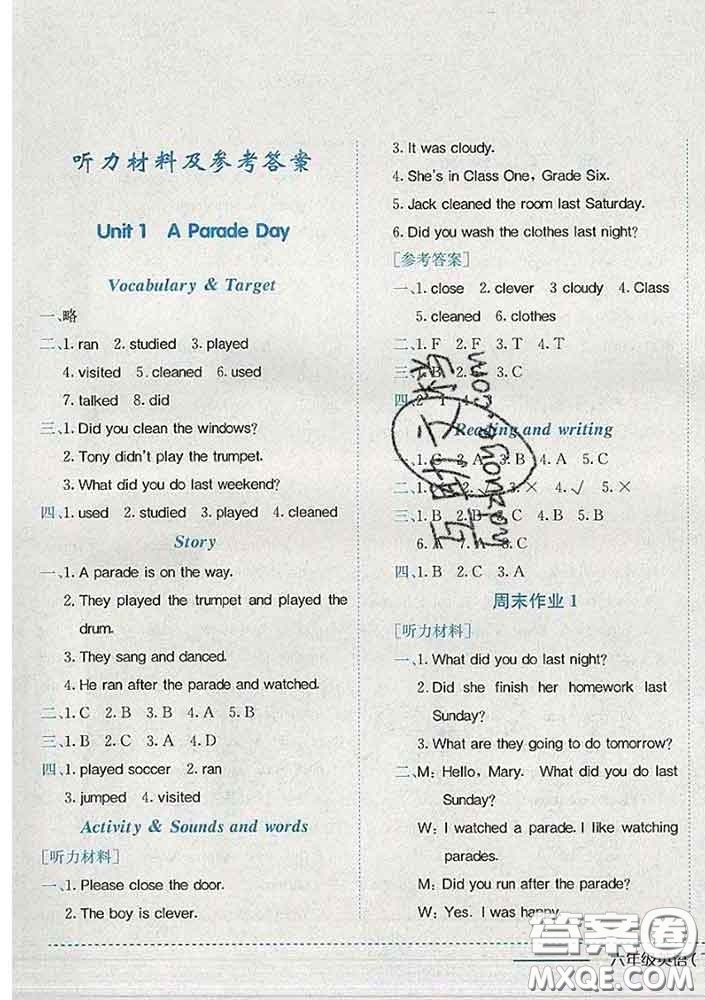 听力材料及参考答案
Unit 1 A Parade Day
Vocabulary & Target
一、略
二、1. ran 2. studied 3. played
4. visited 5. cleaned 6. used
7. talked 8. did
三、1. Did you clean the windows?
2. Tony didn't play the trumpet.
3. What did you do last weekend?
四、1. used 2. studied 3. played 4. cleaned
Story
一、1. A parade is on the way.
2. They played the trumpet and played the
drum.
3. They sang and danced.
4. He ran after the parade and watched.
二、1. C 2. B 3. B 4. A 5. B
三、1. B 2. C 3. B 4. A 5. D
四、1. played soccer 2. ran
3. jumped 4. visited
Activity & Sounds and words
[听力材料]
一、1. Please close the door.
2. The boy is clever.
3. It was cloudy.
4. She's in Class One, Grade Six.
5. Jack cleaned the room last Saturday.
6. Did you wash the clothes last night?
[参考答案]
一、1. close 2. clever 3. cloudy 4. Class
5. cleaned 6. clothes
二、1. F 2. F 3. T 4. T
三、1. B 2. B 3. C
四、2 1
Reading and writing
1. C 2. A 3. B 4. A 5. C
二、1. 3. × 4. √ 5. ×
三、1. B 2. B 3. C 4. B 5. B
6. A 7. A 8. C
四、1. B 2. C 3. A
周末作业 1
[听力材料]
一、1. What did you do last night?
2. Did she finish her homework last
Sunday?
3. What are they going to do tomorrow?
二、M: Hello, Mary. What did you do last
Sunday?
W: I watched a parade. I like watching
parades.
M: Did you run after the parade?
W: Yes. I was happy.
六年级英语(
答案圈
MXQE.COM